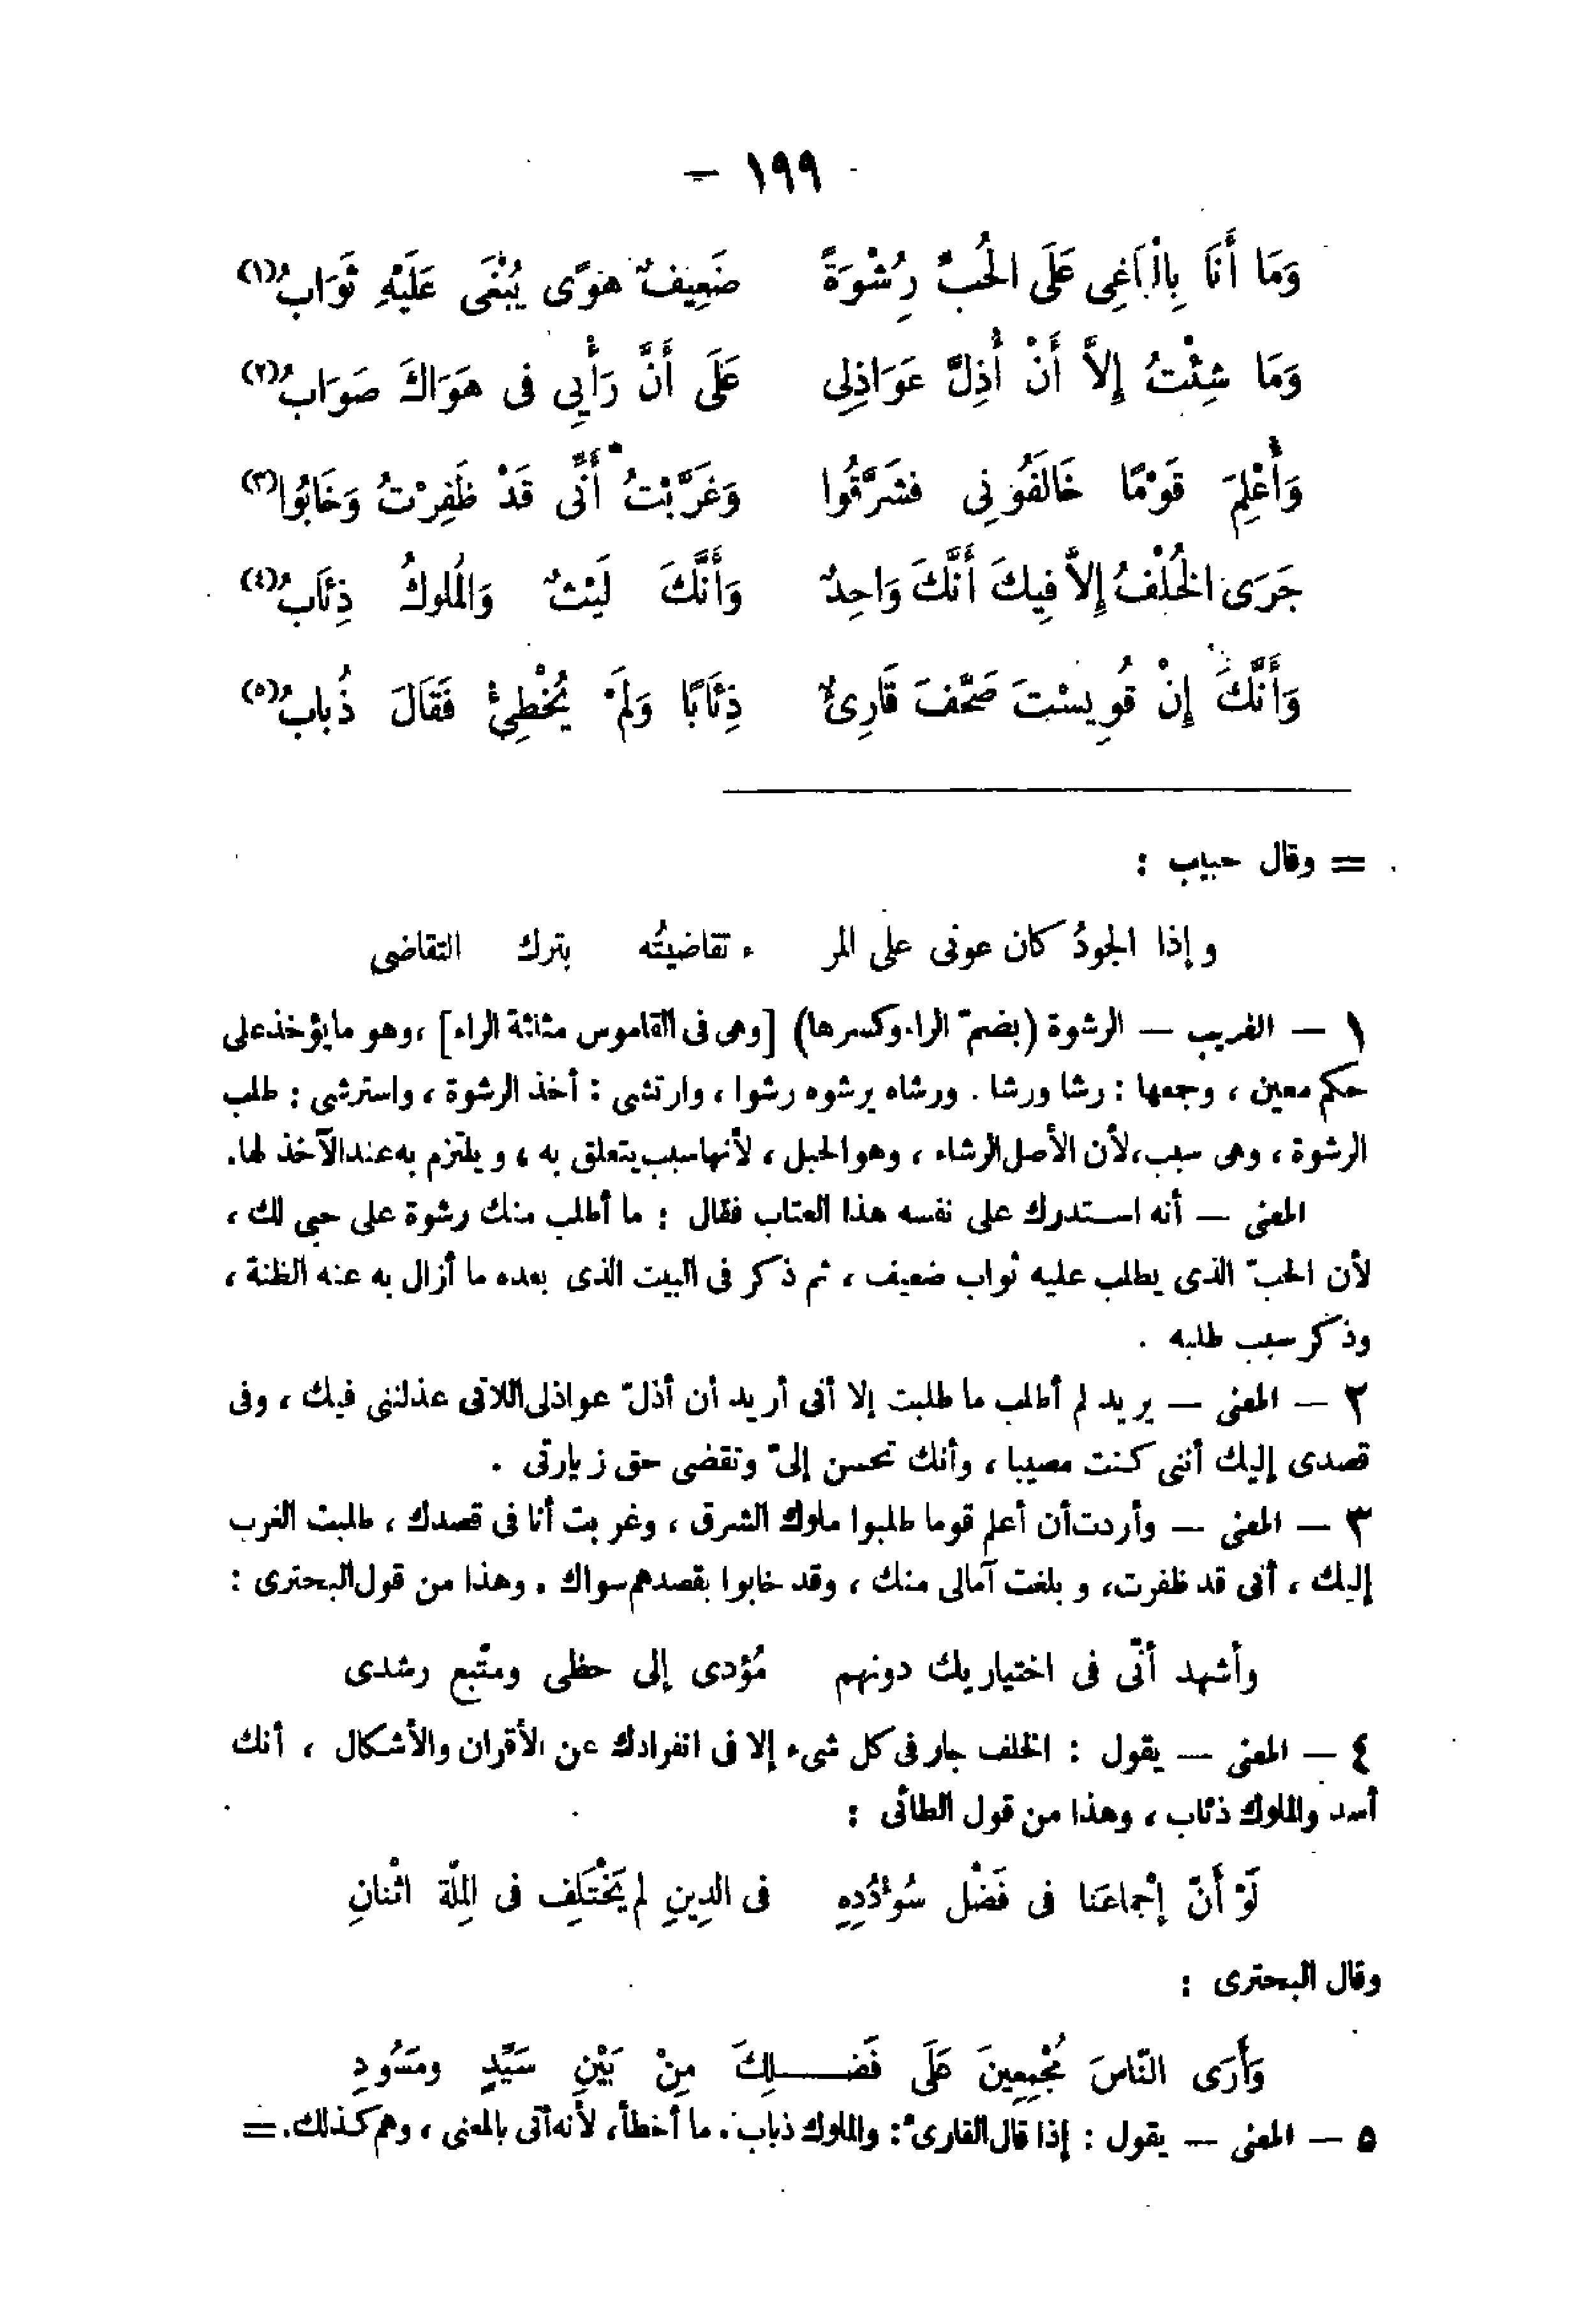 — ١٩٩ —
وَمَا أَنَا بِالْبَاغِى عَلَى الْحُبِّ رِشْوَةً ضَعِيفُ هَوًى يُبْغَى عَلَيْهِ ثَوَابُ(١)
وَمَا شِئْتُ إِلاَّ أَنْ أُذِلَّ عَوَاذِلِى عَلَى أَنَّ رَأْيِى فى هَوَاكَ صَوَابُ(٢)
وَأُعْلِمَ قَوْمًا خَالَفُونِى فشَرَّقُوا وَغَرَّبْتُ أَنِّى قَدْ ظَفِرْتُ وَخَابُوا(٣)
جَرَى الْخُلْفُ إِلاَّ فِيكَ أَنَّكَ وَاحِدٌ وَأَنَّكَ لَيْثٌ وَالْمُلوكُ ذِئَابُ(٤)
وَأَنَّكَ إِنْ قُويِسْتَ صَحَّفَ قَارِئٌ ذِئَابًا وَلَمْ يُخْطِئْ فَقَالَ ذُبابُ(٥)
= وقال حبيب :
وإذا الجودُ كان عونى على المر ء تقاضيتُه بترك التقاضى
١ — الغريب — الرشوة (بضمّ الراء وكسرها) [وهى فى القاموس مثلثة الراء] ، وهو ما يؤخذ على
حكم معين ، وجمعها : رشا ورشا . ورشاه يرشوه رشوا ، وارتشى : أخذ الرشوة ، واسترشى : طلب
الرشوة ، وهى سبب ، لأن الأصل الرشاء ، وهو الحبل ، لأنها سبب يتعلق به ، ويلتزم به عند الآخذ لها .
المعنى — أنه استدرك على نفسه هذا العتاب فقال : ما أطلب منك رشوة على حبى لك ،
لأن الحبّ الذى يطلب عليه ثواب ضعيف ، ثم ذكر فى البيت الذى بعده ما أزال به عنه الظنة ،
وذكر سبب طلبه .
٢ — المعنى — يريد لم أطلب ما طلبت إلا أنى أريد أن أذلّ عواذلى اللاتى عذلننى فيك ، وفى
قصدى إليك أننى كنت مصيبا ، وأنك تحسن إلىّ وتقضى حق زيارتى .
٣ — المعنى — وأردت أن أعلم قوما طلبوا ملوك الشرق ، وغربت أنا فى قصدك ، طلبت الغرب
إليك ، أنى قد ظفرت ، وبلغت آمالى منك ، وقد خابوا بقصدهم سواك . وهذا من قول البحترى :
وأشهد أنّى فى اختياريك دونهم مُؤدى إلى حظى ومتّبع رشدى
٤ — المعنى — يقول : الخلف جار فى كل شىء إلا فى انفرادك عن الأقران والأشكال ، أنك
أسد والملوك ذئاب ، وهذا من قول الطائى :
لَوْ أَنّ إِجْماعَنا فى فَضْل سُوْدُدِهِ فى الدِينِ لم يَخْتَلِف فى المِلّة اثْنانِ
وقال البحترى :
وَأَرَى النّاسَ مُجْمِعِينَ عَلَى فَضـــلِكَ مِنْ بَيْنِ سَيِّدٍ ومَسُودِ
٥ — المعنى — يقول : إذا قال القارىء : والملوك ذباب . ما أخطأ ، لأنه أتى بالمعنى ، وهم كذلك . =